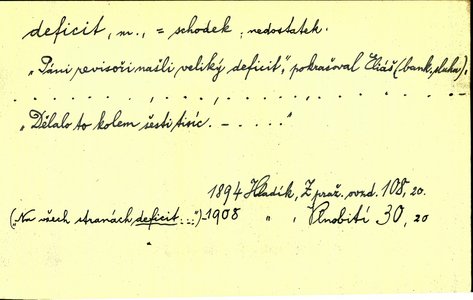 deficit, m., = schodek, nedostatek.
„Páni revisoři našli veliký deficit", pokračoval Eliáš (bank. sluha).
„Dělalo to kolem šesti tisíc. – . . . ."
1894 Hladík, Z praž. ovzd. 108, 20.
(„Na všech stranách deficit...") 1908 " , Vlnobití 30, 20